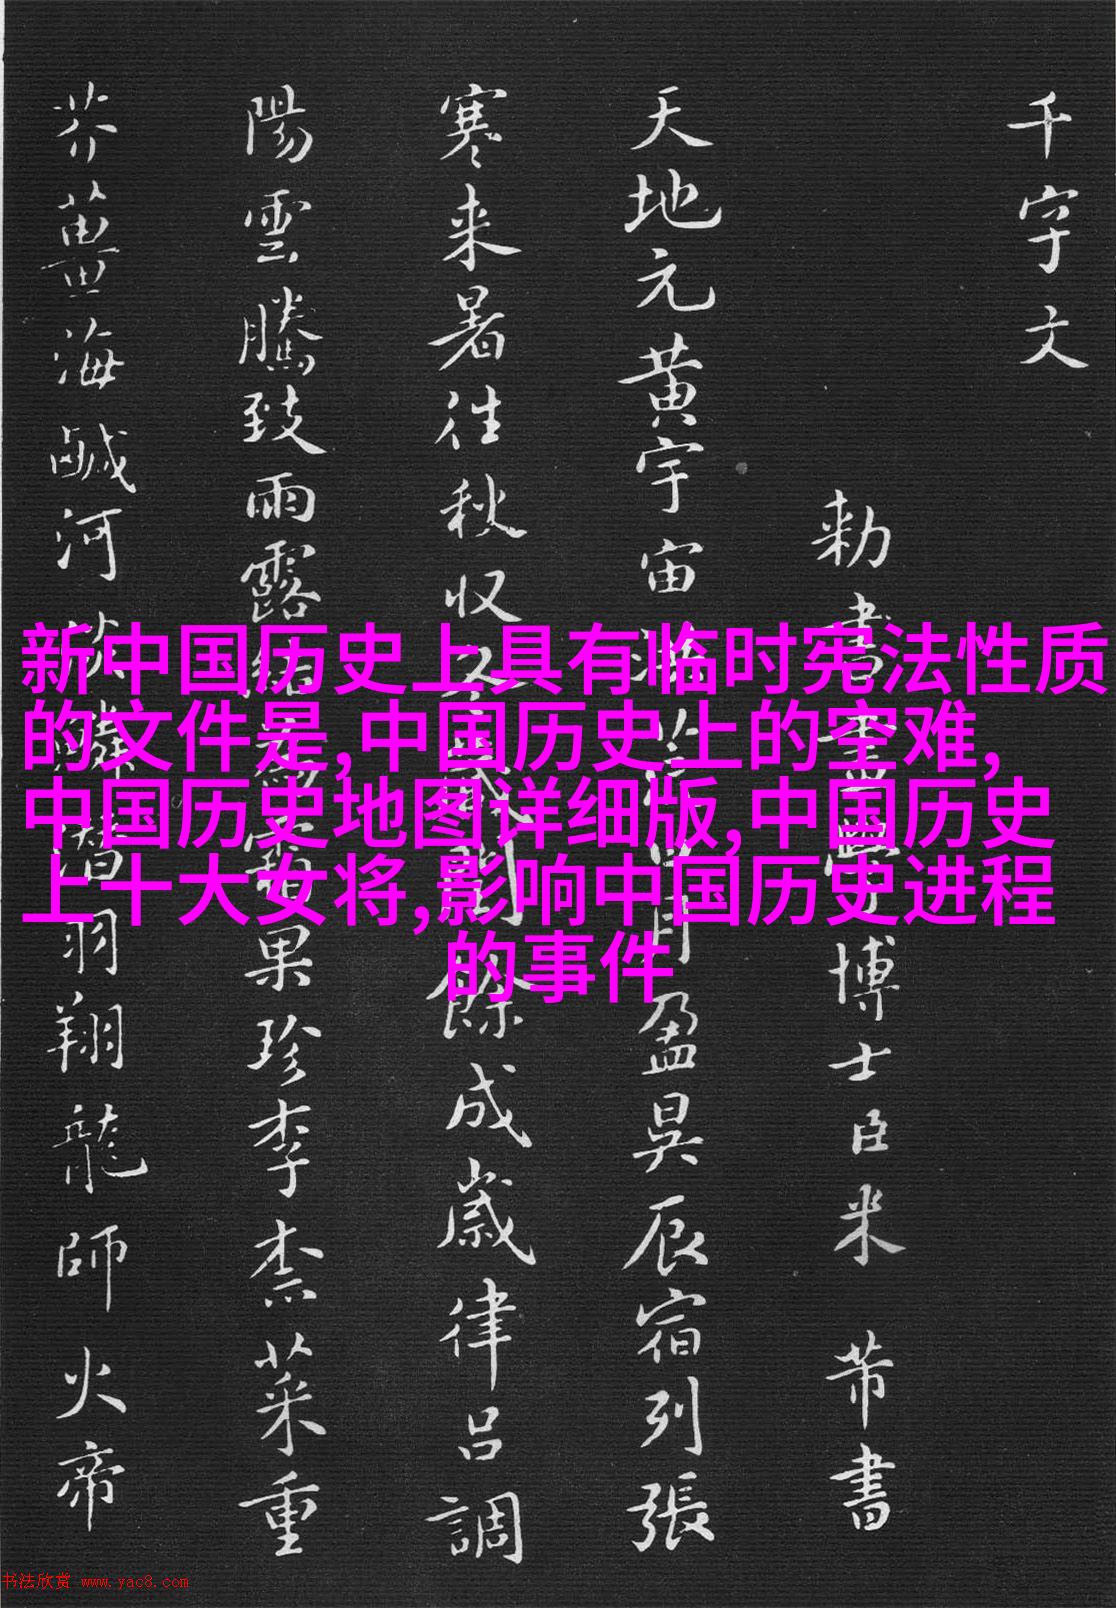 千字文
勅書畫學博士臣米芾書
天地元黄宇宙洪荒日月盈昃辰宿列張
寒来暑往秋収冬蔵閏餘成歲律呂調
陽雲騰致雨露結為霜果珍李柰菜重
芥薑海鹹河淡鱗潛羽翔龍師火帝
新中国历史上具有临时宪法性质
的文件是,中国历史上的空难,
中国历史地图详细版,中国历史
上十大女将,影响中国历史进程
的事件
书法欣赏 www.yac8.com